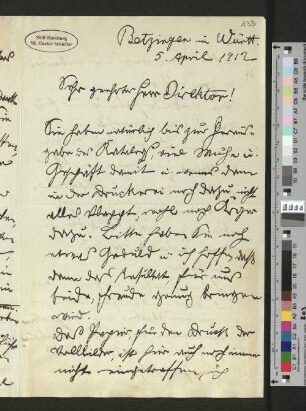 SUB Hamburg
NL Gustav Schiefler
Betzingen in Württ.
5. April 1912
Sehr geehrter Herr Direktor!
Sie haben natürlich bis zur Heraus-
gabe des Katalogs, viel Mühe u.
Geschäft damit u. wenn dann
in der Druckerei noch dazu nicht
alles klappt, wohl noch Ärger
dazu. Bitte haben Sie noch
etwas Geduld u. ich hoffe, daß
dann das Resultat für uns
beide, Freude genug bringen
wird.
Das Papier für den Druck der
Vollbilder, ist hier auch noch immer
nicht eingetroffen, ich